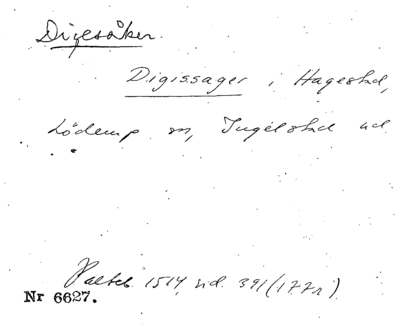 Digesåker.
Digissager i Hagestad,
Löderup sn, Ingelstad hd.
Palteb. 1514, sid. 391 (177r).
Nr 6627.